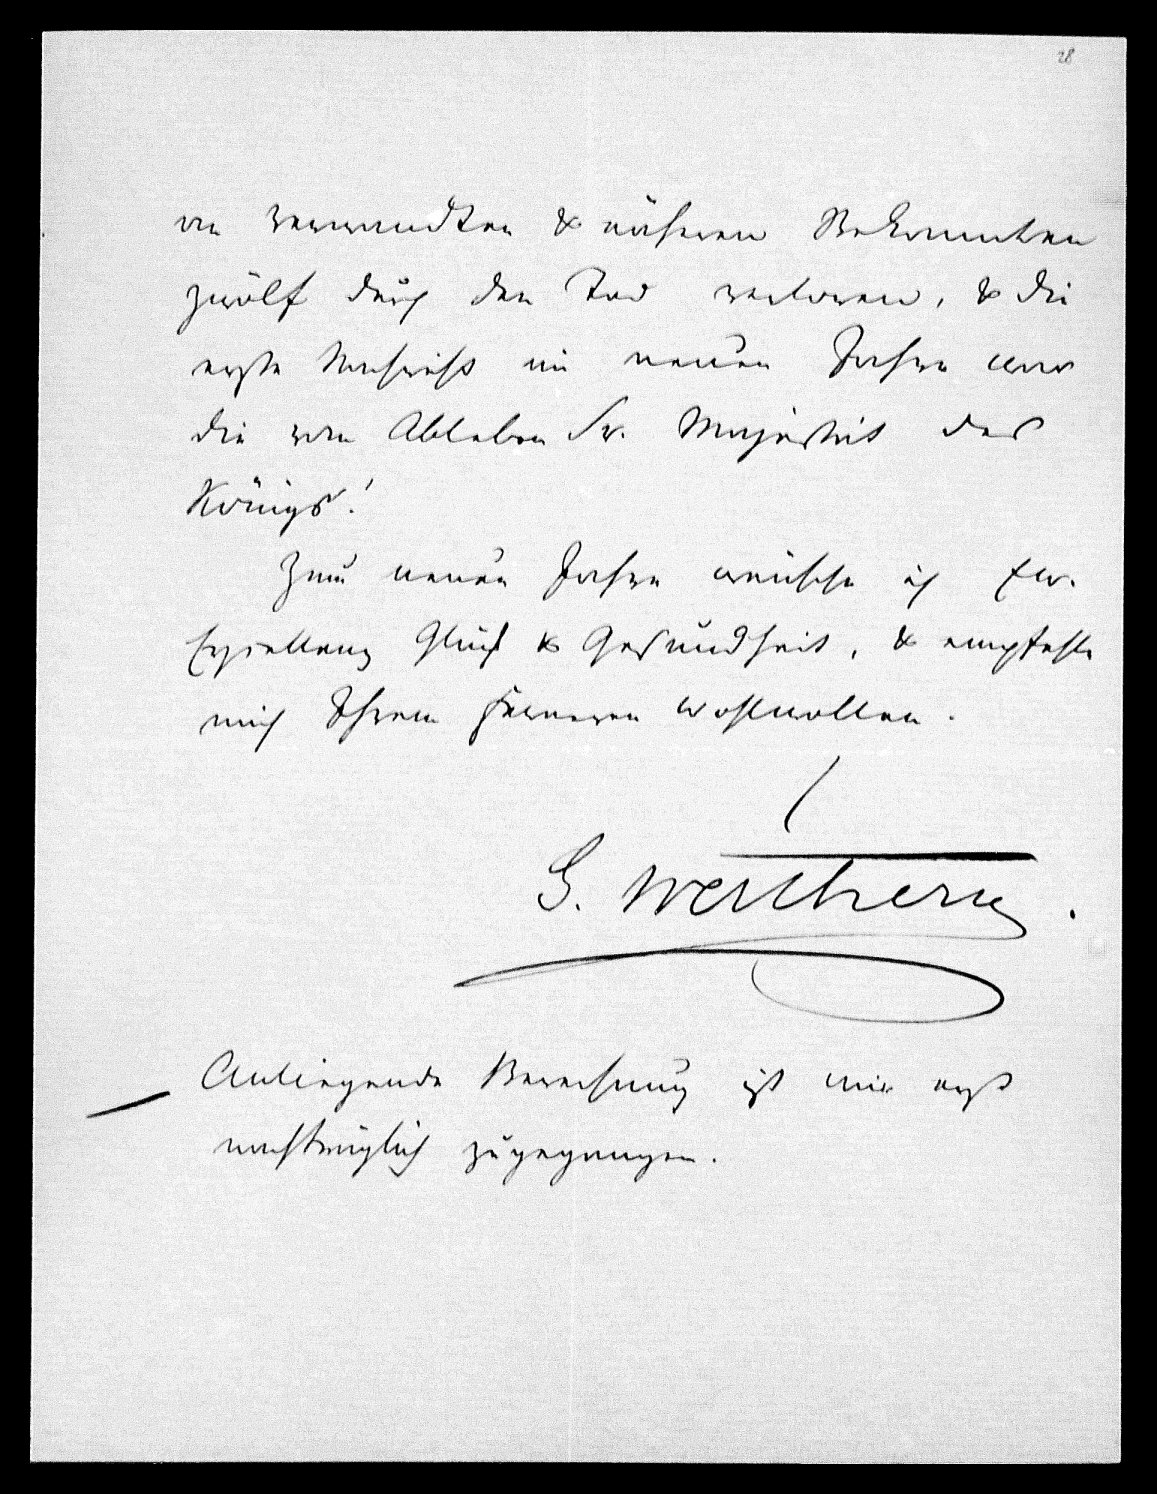 28
an Verwandten & näheren Bekannten
zwölf durch den Tod verloren, & die
erste Nachricht im neuen Jahre war
die vom Ableben Sr. Majestät des
Königs!
Zum neuen Jahre wünsche ich Ew.
Excellenz Glück & Gesundheit, & empfehle
mich Ihrem ferneren Wohlwollen.
G. Werthern.
Anliegende Berechnung ist mir erst
nachträglich zugegangen.